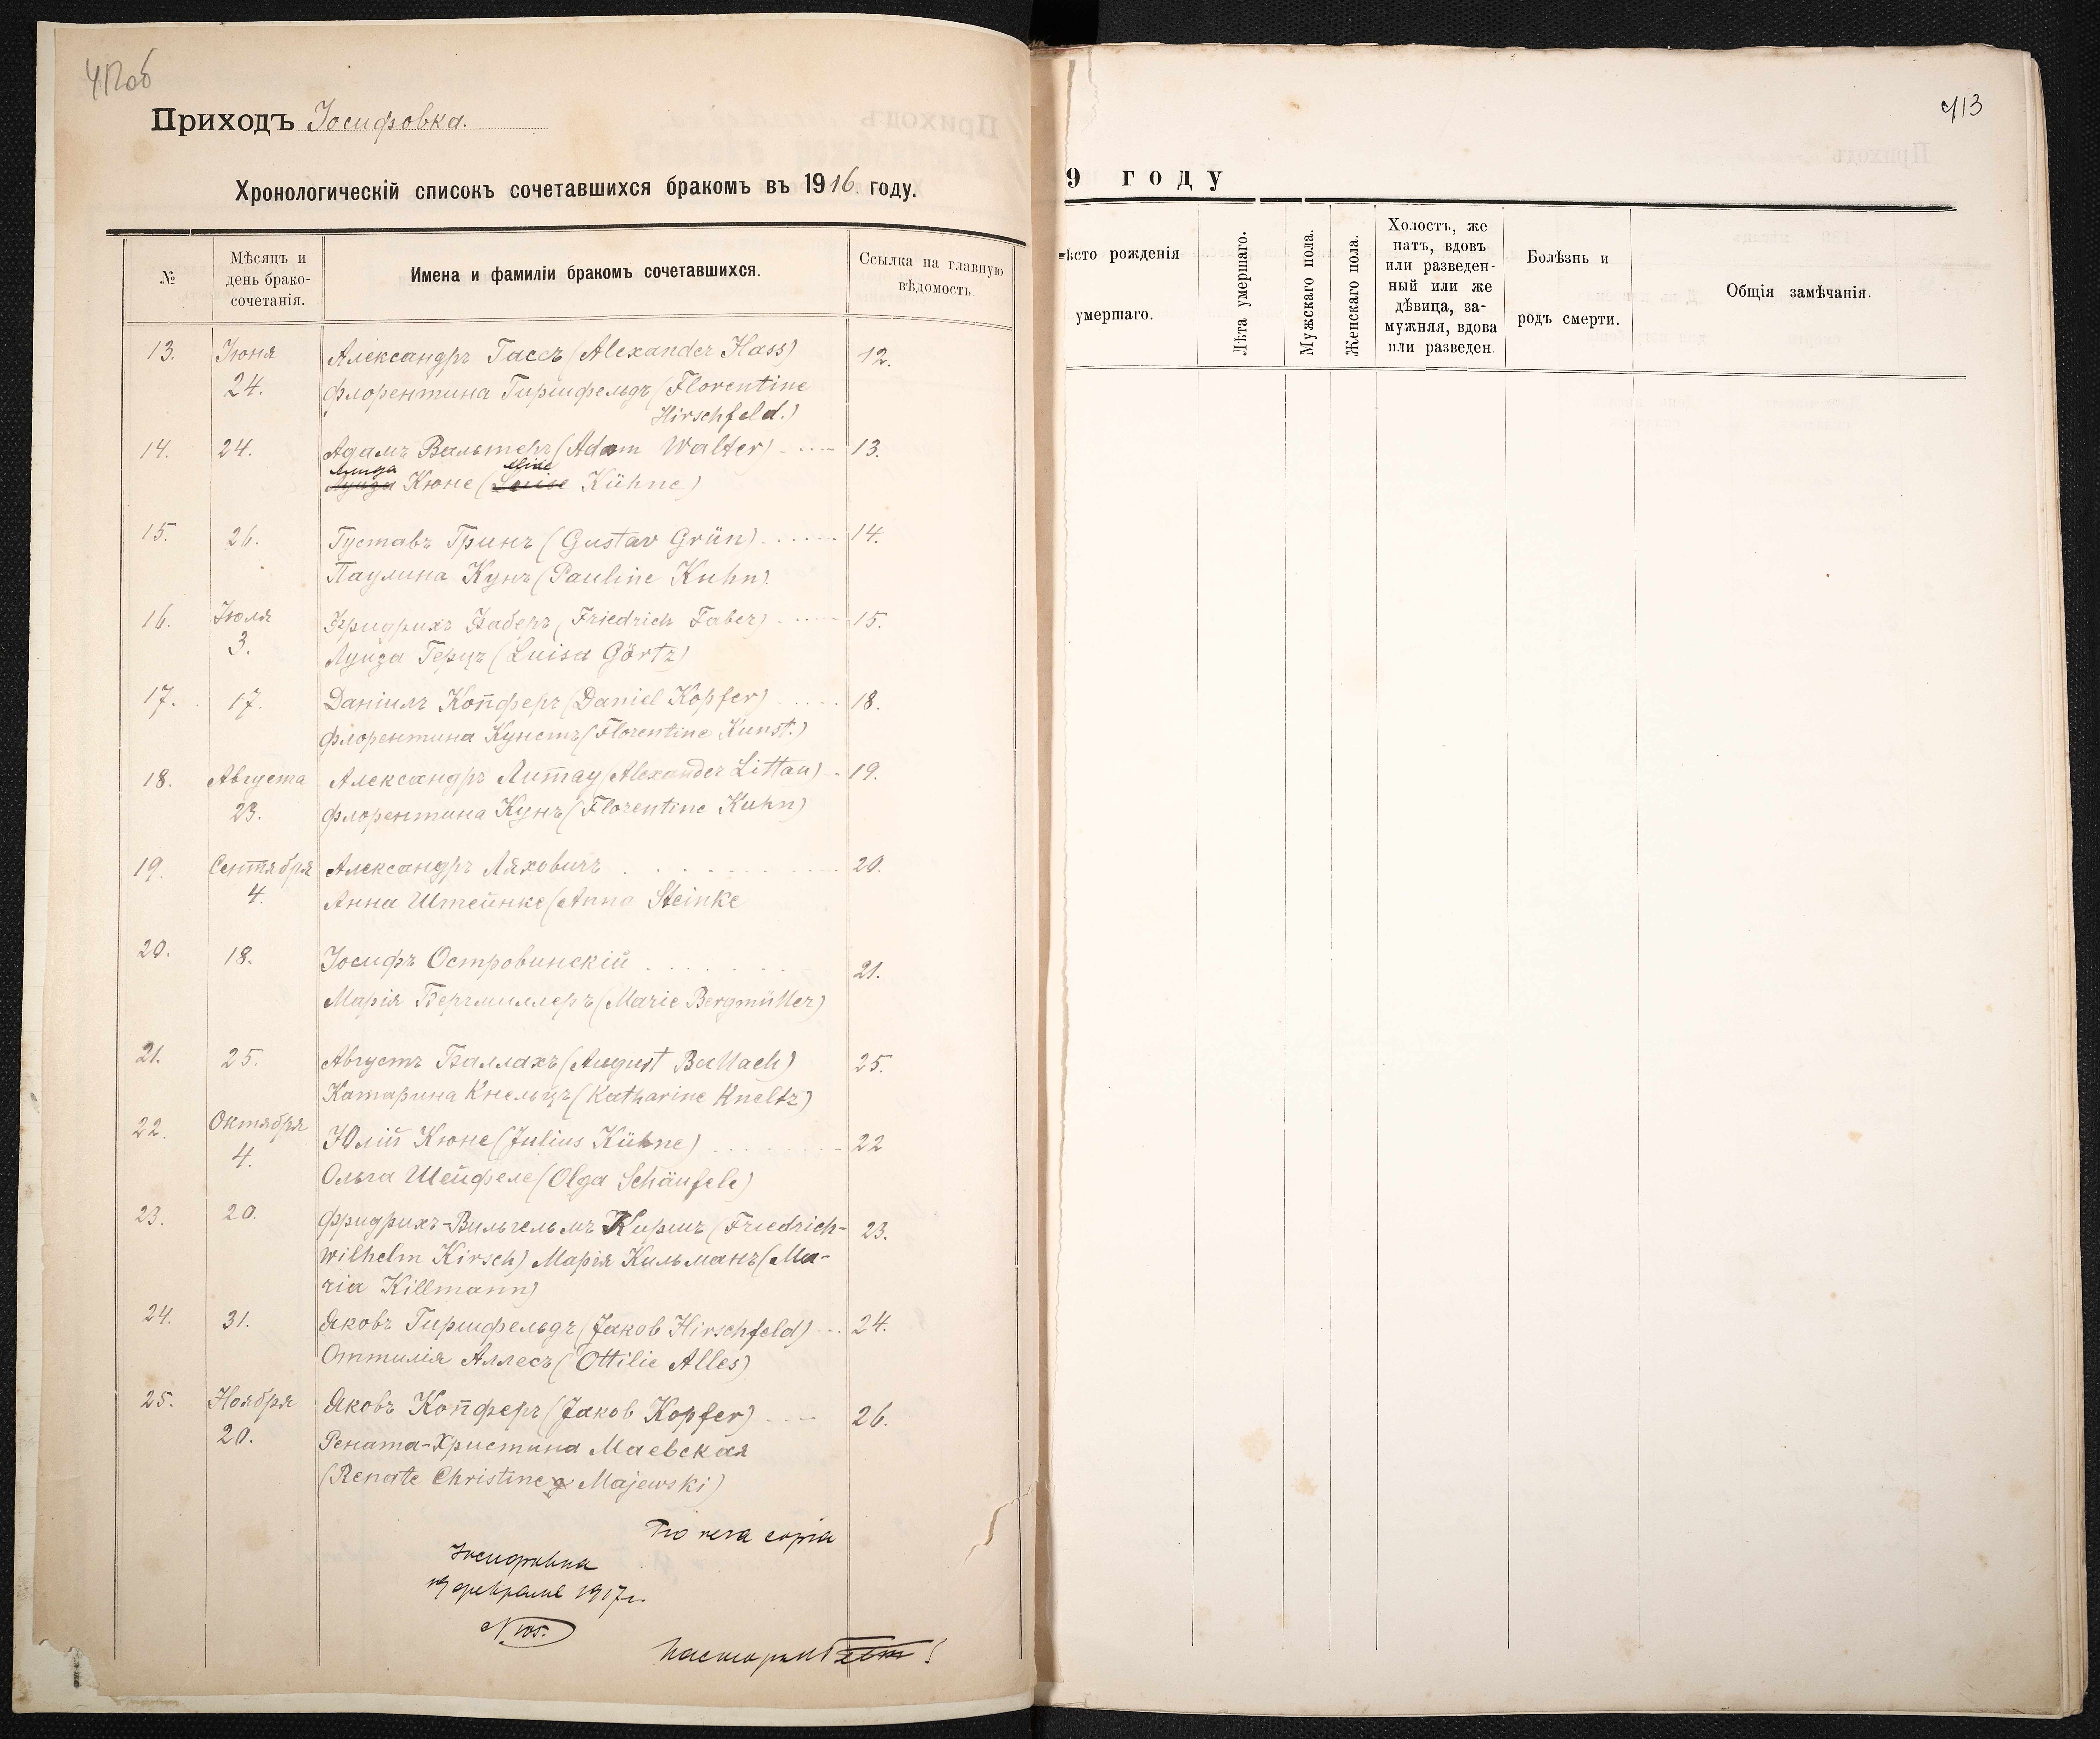 412об
Приходъ Іосифовка.
Хронологическій списокъ сочетавшихся бракомъ въ 1916 году.
№
Мѣсяцъ и
день брако-
сочетанія.
Имена и фамиліи бракомъ сочетавшихся.
Ссылка на главную
вѣдомость.
13. Іюня Александръ Гассъ (Alexander Hass) 12.
24. Флорентина Гиршфельдъ (Florentine
Hirschfeld.)
14. 24. Адамъ Вальтеръ (Adam Walter) 13.
Алида Alide
Луиза Кюне (Luise Kühne)
15. 26. Густавъ Гринъ (Gustav Grün) 14.
Паулина Кунъ (Pauline Kuhn)
16. Іюля Фридрихъ Фаберъ (Friedrich Faber) 15.
3. Луиза Герцъ (Luisa Görtz)
17. 17. Даніилъ Копферъ (Daniel Kopfer) 18.
Флорентина Кунстъ (Florentine Kunst.)
18. Августа Александръ Литтау (Alexander Littau) 19.
23. Флорентина Кунъ (Florentine Kuhn)
19. Сентября Александръ Ляховичъ 20.
4. Анна Штейнке (Anna Steinke
20. 18. Іосифъ Островинскій 21.
Марія Бергмиллеръ (Marie Bergmüller)
21. 25. Августъ Баллахъ (August Ballach) 25.
Катарина Кнельцъ (Katharine Kneltz)
22. Октября Юлій Кюне (Julius Kühne) 22
4. Ольга Шейфеле (Olga Schäufele)
23. 20. Фридрихъ-Вильгельмъ Киршъ (Friedrich- 23.
Wilhelm Kirsch) Марія Кильманъ (Ma-
ria Killmann)
24. 31. Яковъ Гиршфельдъ (Jakob Hirschfeld) 24.
Оттилія Аллесъ (Ottilie Alles)
25. Ноября Яковъ Копферъ (Jakob Kopfer) 26.
20. Рената-Христина Маевская
(Renate Christine Majewski)
Pro vera copia
Іосифовка
19 февраля 1917 г.
N 105.
Пасторъ
413
9 году
ѣсто рожденія
умершаго.
Лѣта умершаго.
Мужскаго пола.
Женскаго пола.
Холостъ, же
натъ, вдовъ
или разведен-
ный или же
дѣвица, за-
мужняя, вдова
или разведен.
Болѣзнь и
родъ смерти.
Общія замѣчанія.